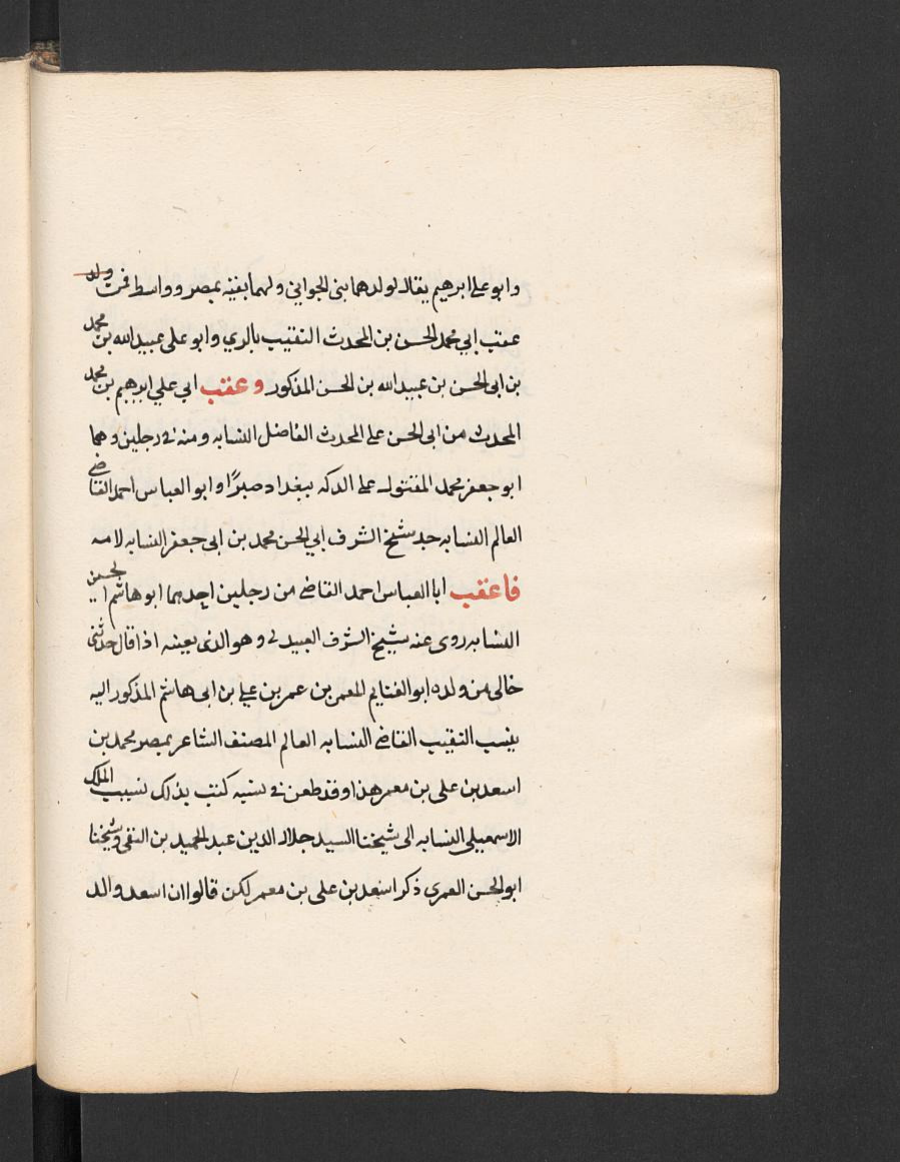 وابو على ابرهيم يقال لولدهما بنى الجوانى ولهما بقيته بمصر وواسط فمن ولد
عقب ابي محمد الحسن بن المحدث النقيب بالري وابو على عبيد الله بن محمد
بن ابى الحسن بن عبيد الله بن الحسن المذكور وعقب ابي علي ابرهيم بن محمد
المحدث من ابى الحسن على المحدث الفاضل النسابه ومنه فى رجلين وهما
ابو جعفر محمد المقتول على الدكه ببغداد صبرًا وابو العباس احمد القاضى
العالم النسابه جد شيخ الشرف ابي الحسن محمد بن ابى جعفر النسابه لامه
فاعقب ابا العباس احمد القاضى من رجلين احدهما ابو هاشم الحسين
النسابه روى عنه شيخ الشرف العبيدلى وهو الذى يعينه اذا قال حدثنى
خالى من ولده ابو الغنايم المعمر بن عمر بن على بن ابى هاشم المذكور اليه
ينسب النقيب القاضى النسابه العالم المصنف الشاعر بمصر محمد بن
اسعد بن على بن معمر هذا وقد طعن فى نسبه كتب بذلك نسيب الملك
الاسمعيلى النسابه الى شيخنا السيد جلال الدين عبد الحميد بن التقى وشيخنا
ابو الحسن العمرى ذكر اسعد بن على بن معمر لكن قالوا ان اسعد والد